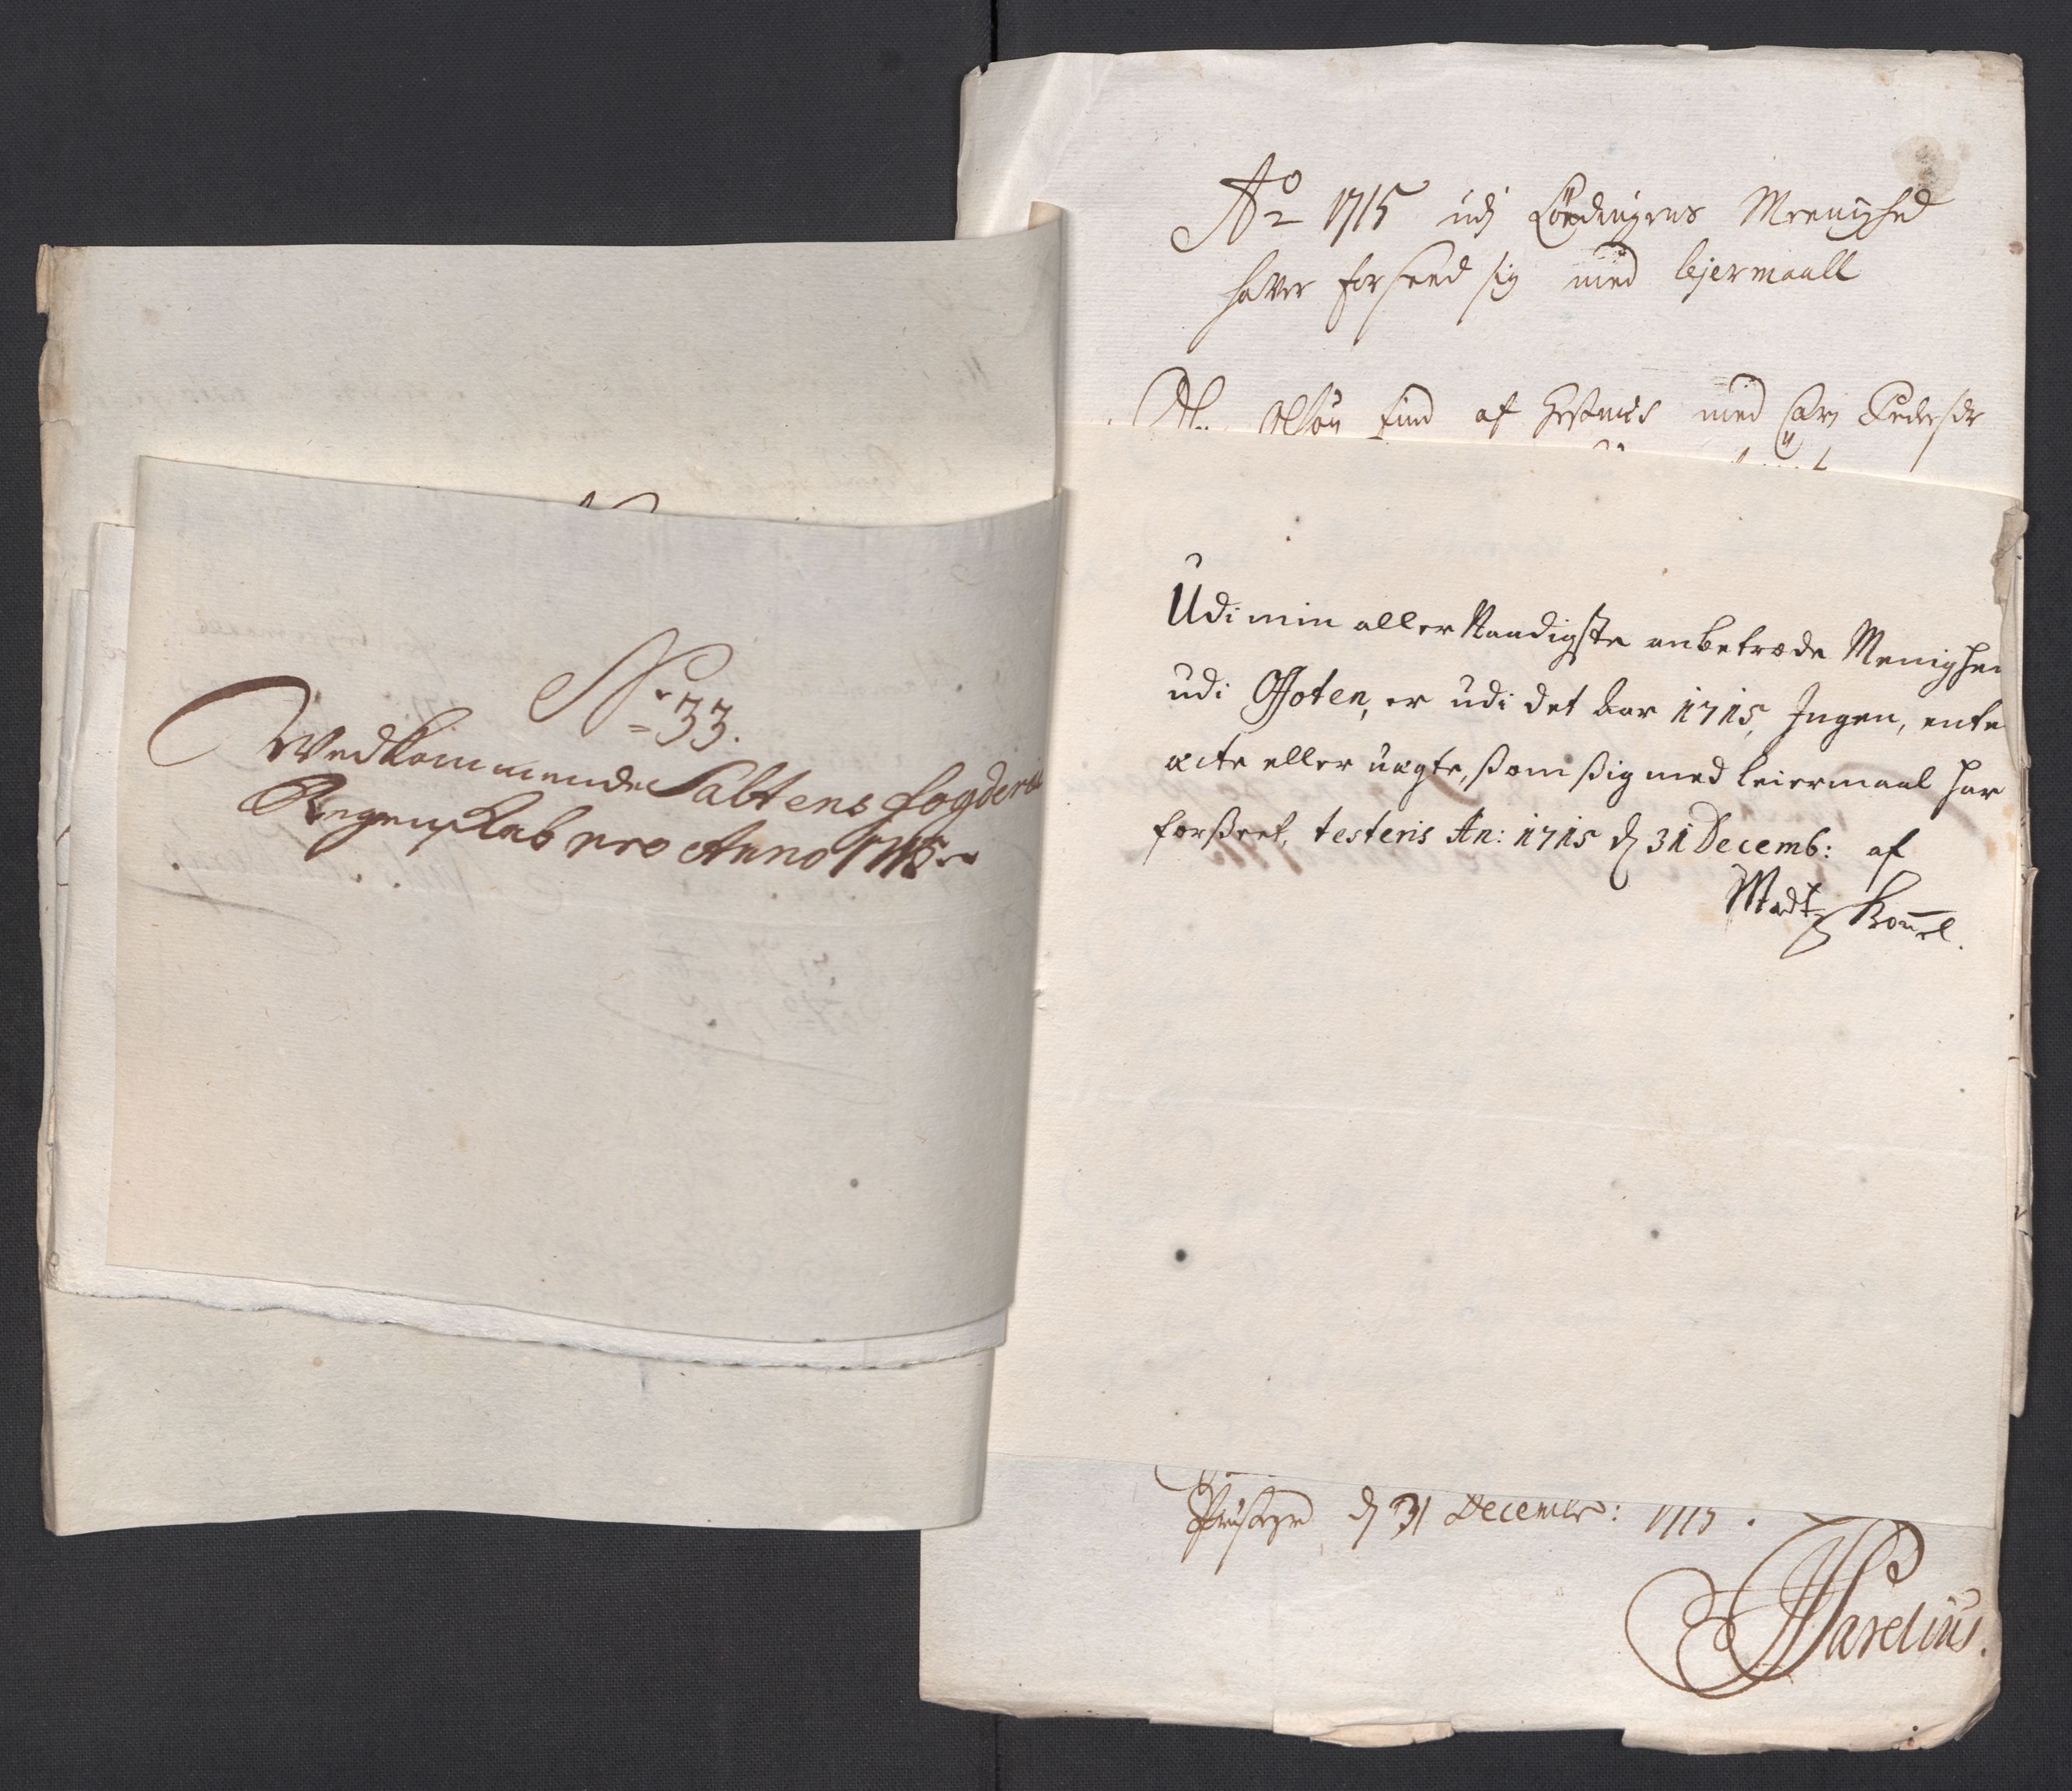 No 33.
Wedkommende Saltens fogderie
Regenskab pro Anno 1715
Ao 1715 udj Lödingens Meenighed
hafver forseed sig med lejermaall
Olsön find af med Pedersdr
Udi min allernaadigste anbetroede Menighed
udi Ofoten, er udi det Aar 1715, Ingen, ente
ecte eller uegte, som sig med leiermaal har
forseet, testeris An: 1715 d 31 Decemb: af
Madtz
d 31 Decembr: 1715.